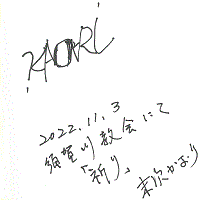 KAORI
2022.11.3
須賀川教会にて
「祈り」
末次かおり